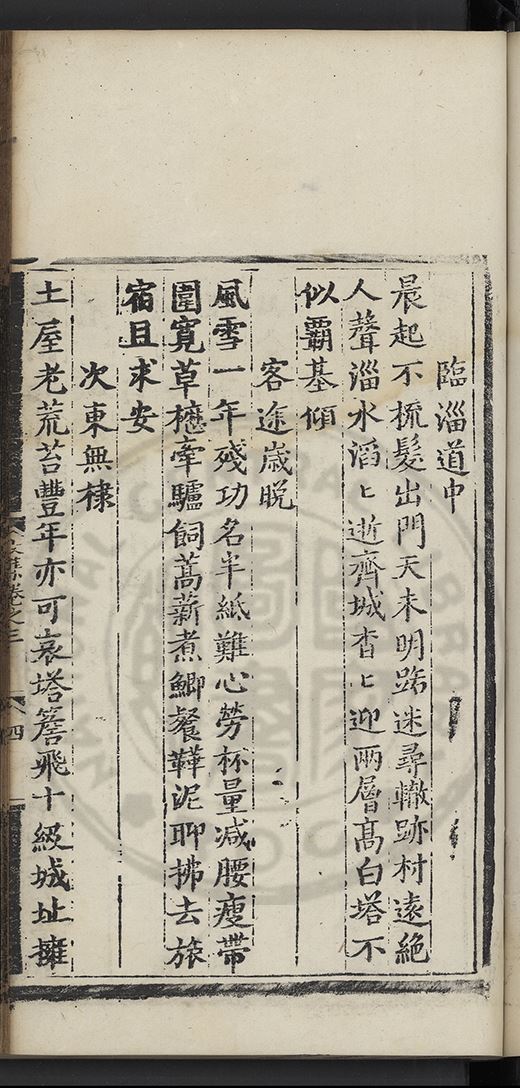 臨淄道中
晨起不梳髮出門天未明路迷尋轍跡村遠絶
人聲淄水滔〻逝齊城杳〻迎兩層髙白塔不
似覇基傾
客途歳晩
風雪一年殘功名半紙難心勞杯量减腰瘦帶
圍寛草櫪牽驢飼蒿薪煮鯽餐鞾泥聊拂去旅
宿且求安
次東無棣
土屋老荒苔豐年亦可哀塔簷飛十級城址擁
集卷之三
四